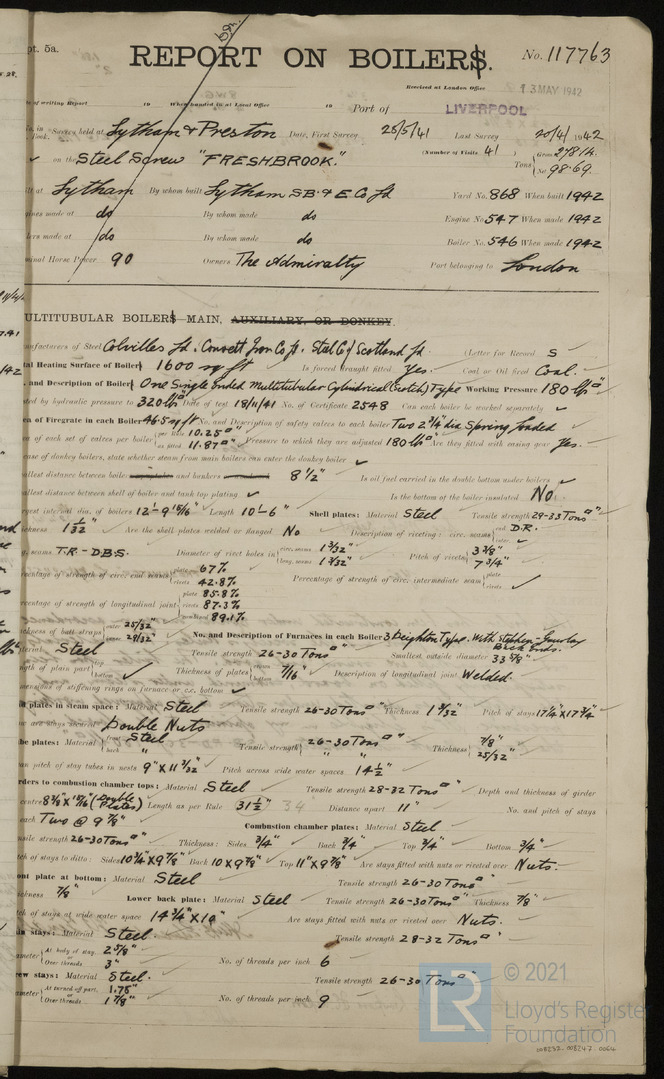 pt. 5a.
REPORT ON BOILERS.
No. 117763
Received at London Office
13 MAY 1942
of writing Report 19 When handed in at Local Office 19 Port of LIVERPOOL
Survey held at Lytham & Preston Date, First Survey 25/5/41 Last Survey 20/4/1942
on the Steel Screw "FRESHBROOK." (Number of Visits 41) Tons Gross 278.14. Net 98.69.
Lytham By whom built Lytham S.B. & E Co Ld Yard No. 868 When built 1942
made at do By whom made do Engine No. 547 When made 1942
made at do By whom made do Boiler No. 546 When made 1942
Horse Power 90 Owners The Admiralty Port belonging to London
ULTITUBULAR BOILERS MAIN, AUXILIARY, OR DONKEY.
nufacturers of Steel Colvilles Ld. Consett Iron Co Ld. Steel Co of Scotland Ld. (Letter for Record S
al Heating Surface of Boiler 1600 sq ft Is forced draught fitted Yes. Coal or Oil fired Coal.
and Description of Boilers One Single Ended Multitubular Cylindrical (Scotch) Type Working Pressure 180 lbs
ted by hydraulic pressure to 320 lbs Date of test 18/11/41 No. of Certificate 2548 Can each boiler be worked separately ✓
ea of Firegrate in each Boiler 46.5 sq ft No. and Description of safety valves to each boiler Two 2¾" dia Spring loaded
ea of each set of valves per boiler per Rule 10.25 as fitted 11.87 Pressure to which they are adjusted 180 lbs Are they fitted with easing gear Yes.
case of donkey boilers, state whether steam from main boilers can enter the donkey boiler ✓
allest distance between boilers and bunkers 8½" Is oil fuel carried in the double bottom under boilers ✓
allest distance between shell of boiler and tank top plating ✓ Is the bottom of the boiler insulated No.
rgest internal dia. of boilers 12'-9 15/16" Length 10'-6" Shell plates: Material Steel Tensile strength 29-33 Tons
ickness 1 1/32" Are the shell plates welded or flanged No Description of riveting: circ. seams end D.R. inter ✓
seams T.R - D.B.S. Diameter of rivet holes in circ. seams 1 3/32" long. seams 1 3/32" Pitch of rivets 3 3/8" 7 3/4"
rcentage of strength of circ. end seams plate 67% rivets 42.8% Percentage of strength of circ. intermediate seam plate rivets ✓
rcentage of strength of longitudinal joint plate 85.8% rivets 87.3% combined 89.1%
ckness of butt straps outer 25/32" inner 29/32" No. and Description of Furnaces in each Boiler 3 Deighton Type. With Stephen Gourlay Back Ends.
terial Steel Tensile strength 26-30 Tons Smallest outside diameter 33 5/8"
gth of plain part top bottom ✓ Thickness of plates crown bottom 7/16" Description of longitudinal joint Welded.
mensions of stiffening rings on furnace or c.c. bottom ✓
d plates in steam space: Material Steel Tensile strength 26-30 Tons Thickness 1 3/32" Pitch of stays 17¼" x 17¾"
w are stays secured Double Nuts
be plates: Material front Steel back " Tensile strength 26-30 Tons " Thickness 7/8" 25/32"
an pitch of stay tubes in nests 9" x 11 3/32" Pitch across wide water spaces 14½"
rders to combustion chamber tops: Material Steel Tensile strength 28-32 Tons Depth and thickness of girder
centre (Double Plates) Length as per Rule 31½" 34 Distance apart 11" No. and pitch of stays
each Two @ 9 7/8" Combustion chamber plates: Material Steel
sile strength 26-30 Tons Thickness: Sides 3/4" Back 3/4" Top 3/4" Bottom 3/4"
ch of stays to ditto: Sides 10¼" x 9 7/8" Back 10 x 9 7/8" Top 11" x 9 7/8" Are stays fitted with nuts or riveted over Nuts.
ont plate at bottom: Material Steel Tensile strength 26-30 Tons
ckness 7/8" Lower back plate: Material Steel Tensile strength 26-30 Tons Thickness 7/8"
ch of stays at wide water space 14¾" x 10" Are stays fitted with nuts or riveted over Nuts.
in stays: Material Steel. Tensile strength 28-32 Tons
ameter At body of stay, or Over threads 2 5/8" 3" No. of threads per inch 6
rew stays: Material Steel. Tensile strength 26-30 Tons
ameter At turned off part, or Over threads 1.75" 1 7/8" No. of threads per inch 9
LR © 2021
Lloyd's Register
Foundation
008232-008247-0064